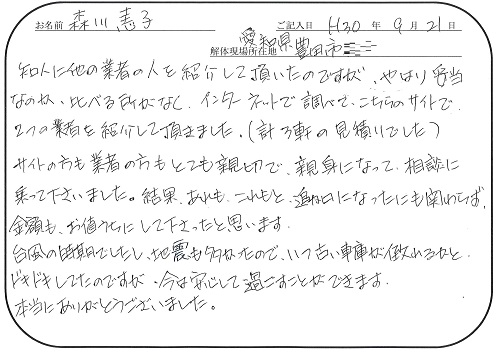 お名前 森川 恵子 ご記入日 H30 年 9 月 21 日
解体現場所在地 愛知県豊田市
知人に他の業者の人を紹介して頂いたのですが、やはり妥当
なのか、比べる所がなく、インターネットで調べて、こちらのサイトで、
2つの業者を紹介して頂きました。(計3軒の見積りでした)
サイトの方も業者の方もとても親切で、親身になって、相談に
乗って下さいました。結果、あれも、これもと、追加になったにも関わらず、
金額も、お値うちにして下さったと思います。
台風の時期でしたし、地震も多かったので、いつ古い車庫が倒れるかと、
ドキドキしてたのですが、今は安心して過ごすことができます。
本当にありがとうございました。